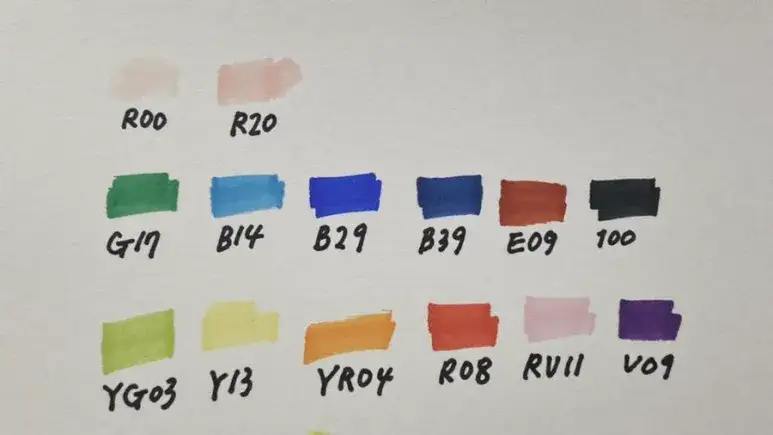 R00 R20
G17 B14 B29 B39 E09 100
YG03 Y13 YR04 R08 RV11 V09